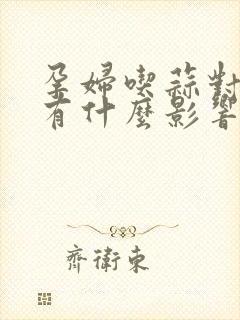 孕婦喫蒜對
有什麼影響
齊衛東